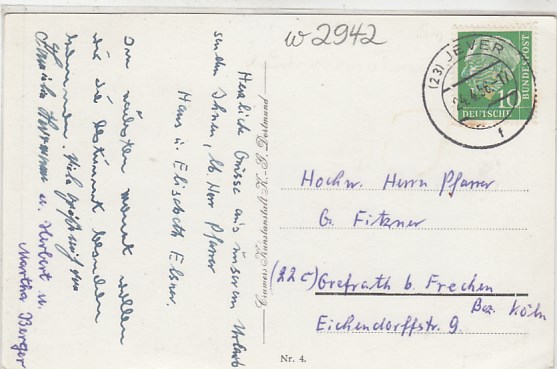 w 2942
(23) JEVER
24.4.56-17
f
DEUTSCHE
BUNDESPOST
10
Herzliche Grüsse aus unserem Urlaub
senden Ihnen, lb. Herr Pfarrer
Hans u. Elisabeth Elsner.
Im nächsten Monat wollen
wir Sie bestimmt besuchen
kommen. Viele Grüße auch von
Herbert u.
Martha Berger
Cramers Kunstanstalt K.-G. Dortmund
Hochw. Herrn Pfarrer
G. Fitzner
(22c) Grefrath b. Frechen
Bez. Köln
Eichendorffstr. 9
Nr. 4.